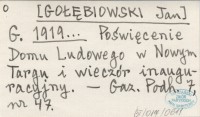 [GOŁĘBIOWSKI Jan]
G. 1919... Poświęcenie
Domu Ludowego w Nowym
Targu i wieczór inaugu-
racyjny. — Gaz. Podh. 7,
nr 47.